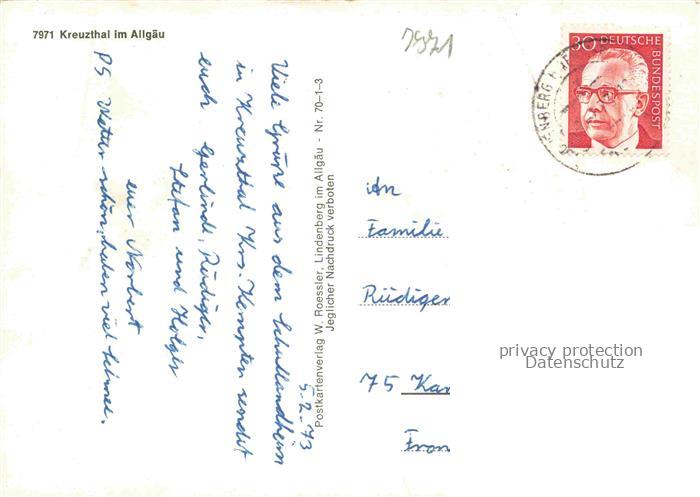 7971 Kreuzthal im Allgäu
7971
30 DEUTSCHE BUNDESPOST
5.2.73
Viele Grüße aus dem Schullandheim
in Kreuzthal Krs. Kempten sendet
euch Gerlinde, Rüdiger,
Stefan und Holger
euer Norbert
PS Wetter schön, haben viel Schnee.
Postkartenverlag W. Roessler, Lindenberg im Allgäu - Nr. 70-1-3
Jeglicher Nachdruck verboten
An
Familie
Rüdiger
75 Kar
Fron
privacy protection
Datenschutz